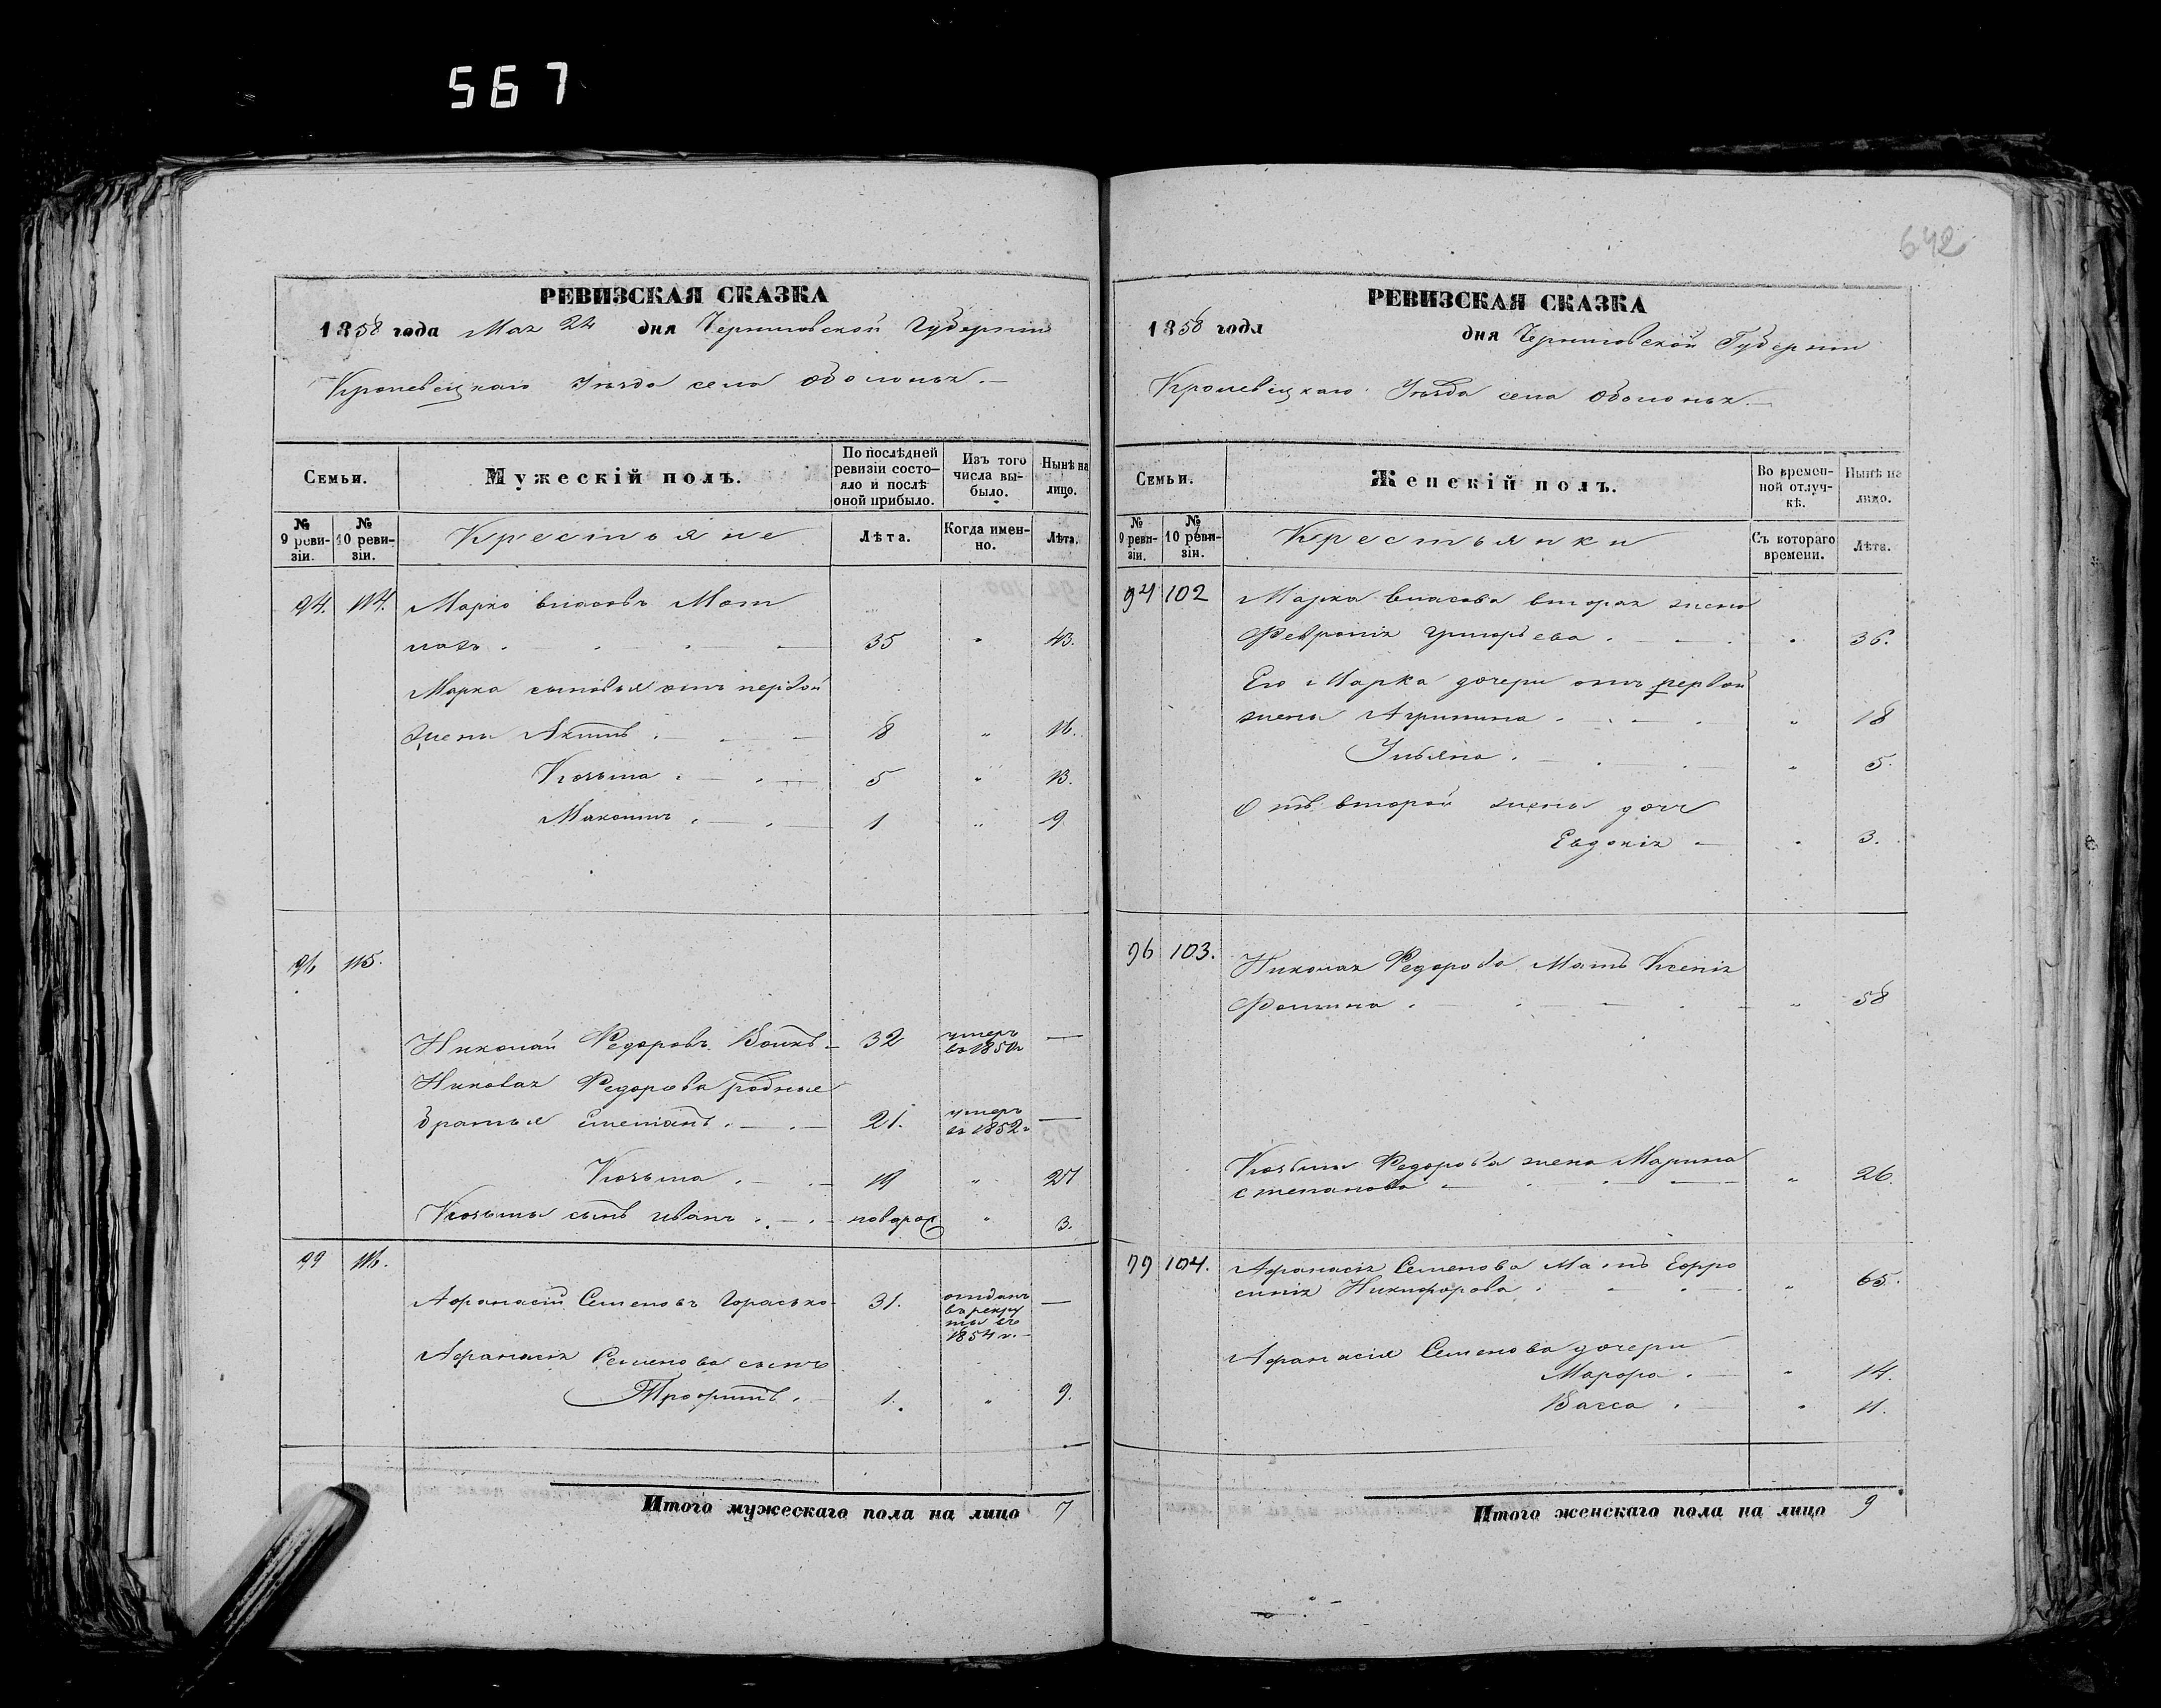 567
642
РЕВИЗСКАЯ СКАЗКА
1858 года Мая 24 дня Черниговской Губернии
Кролевецкаго Уезда села Оболонья.—
Семьи.
Мужескій полъ.
По послѣдней ревизіи состо-
яло и послѣ
оной прибыло.
Изъ того
числа вы-
было.
Нынѣ на
лицо.
№
9 реви-
зіи.
№
10 реви-
зіи.
Крестьяне
Лѣта.
Когда имен-
но.
Лѣта.
94. 114. Марко Власовъ
35 " 43.
Марка сыновья отъ первой
жены Акимъ 8 " 16.
Козьма 5 " 13.
1 " 9
96 115.
Николай Федоровъ 32 умеръ въ 1850 г —
Федорова родные
братья Степанъ 21. умеръ въ 1852 г —
Козьма 19 " 27
Козьмы сынъ Иванъ новорож " 3.
99 116.
Афанасій Семеновъ Гораско 31. отданъ
въ рекру
ты въ
1854 г. —
Афанасія Семенова сынъ
Трофимъ 1. " 9.
Итого мужескаго пола на лицо 7
РЕВИЗСКАЯ СКАЗКА
1858 года дня Черниговской Губернии
Кролевецкаго Уезда села Оболонья.—
Семьи.
Женскій полъ.
Во времен-
ной отлуч-
кѣ.
Нынѣ на
лицо.
№
9 реви-
зіи.
№
10 реви-
зіи.
Крестьянки
Съ котораго
времени.
Лѣта.
94 102 Марка Власова вторая жена
Феврония Григорьева " 36.
Его Марка дочери отъ первой
жены Агрипина " 18
Ульяна " 5.
Отъ второй жены дочь
Евдокія " 3.
96 103. Николая Федорова Мать Ксенія
Фомина " 58
Козьмы Федорова жена Марина
Степанова " 26
99 104. Афанасія Семенова Мать Ефро
синія Никифорова " 65.
Афанасія Семенова дочери
Марфа " 14.
Васса " 11.
Итого женскаго пола на лицо 9